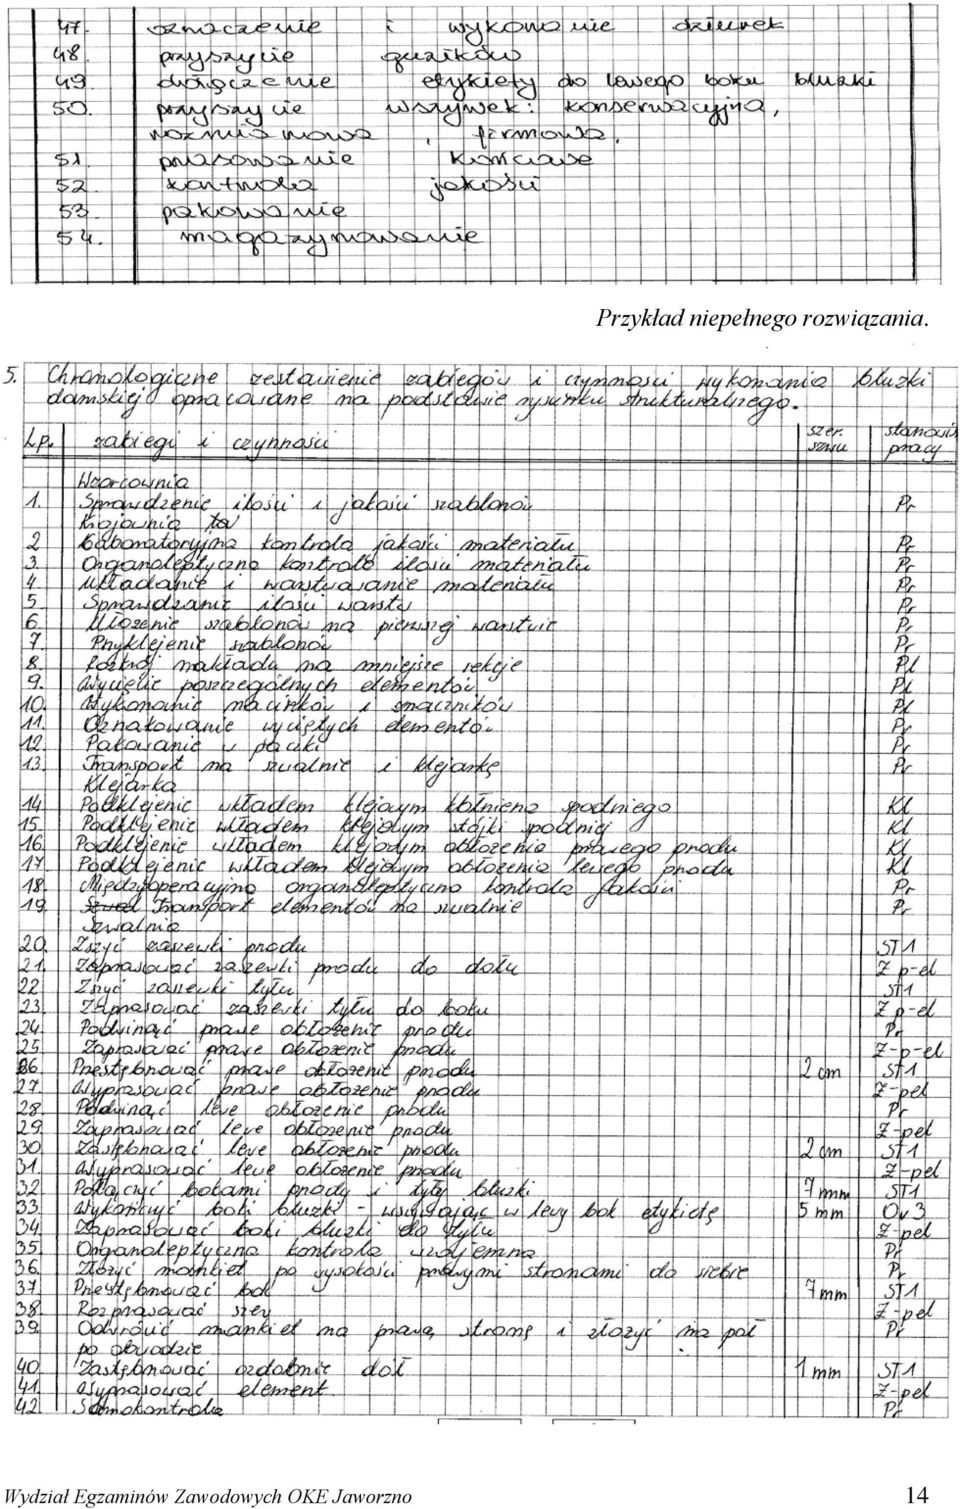 47. oznaczenie i wykonanie dziurek
48. przyszycie guzików
49. dołączenie etykiety do lewego boku bluzki
50. przyszycie wszywek: konserwacyjna,
rozmiarowa, firmowa.
51. prasowanie końcowe
52. kontrola jakości
53. pakowanie
54. magazynowanie
Przykład niepełnego rozwiązania.
5. Chronologiczne zestawienie zabiegów i czynności wykonania bluzki
damskiej opracowane na podstawie rysunku strukturalnego.
Lp. zabiegi i czynności szer. szwu stanowis pracy
Wzorcownia
1. Sprawdzenie ilości i jakości szablonów Pr
Krojownia
2 Laboratoryjna kontrola jakości materiału Pr
3. Organoleptyczna kontrola ilości materiału Pr
4. Układanie i warstwowanie materiału Pr
5. Sprawdzanie ilości warstw Pr
6. Ułożenie szablonów na pierwszej warstwie Pr
7. Przyklejenie szablonów Pr
8. Rozkrój nakładu na mniejsze sekcje Pł
9. Wycięcie poszczególnych elementów Pł
10. Wykonanie nacinków i znaczników Pł
11. Oznakowanie wyciętych elementów Pr
12. Pakowanie w paczki Pr
13. Transport na szwalnie i klejarkę Pr
Klejarka
14. Podklejenie wkładem klejowym kołnierza spodniego Kl
15. Podklejenie wkładem klejowym stójki spodniej Kl
16. Podklejenie wkładem klejowym obłożenia prawego przodu Kl
17 Podklejenie wkładem klejowym obłożenia lewego przodu Kl
18. Międzyoperacyjna organoleptyczna kontrola jakości Pr
19. Transport elementów na szwalnie Pr
Szwalnia
20. Zszyć zaszewki przodu ST1
21. Zaprasować zaszewki przodu do dołu Ż p-el
22 Zszyć zaszewki tyłu ST1
23. Zaprasować zaszewki tyłu do boku Ż p-el
24. Podwinąć prawe obłożenie przodu Pr
25. Zaprasować prawe obłożenie przodu Ż-p-el
26. Przestębnować prawe obłożenie przodu 2 cm ST1
27. Wyprasować prawe obłożenie przodu Ż-pel
28. Podwinąć lewe obłożenie przodu Pr
29. Zaprasować lewe obłożenie przodu Ż-pel
30. Zastębnować lewe obłożenie przodu 2 cm ST1
31. Wyprasować lewe obłożenie przodu Ż-pel
32 Połączyć bokami przody i tyły bluzki 7 mm ST1
33. Wykończyć boki bluzki - wszywając w lewy bok etykietę 5 mm Ov3
34. Zaprasować boki bluzki do tyłu Ż-pel
35. Organoleptyczna kontrola wzajemna Pr
36. Złożyć mankiet po wysokości prawymi stronami do siebie Pr
37. Przestębnować boki 7 mm ST1
38. Rozprasować szwy Ż-pel
39. Odwrócić mankiet na prawą stronę i złożyć na pół Pr
po obwodzie
40. Zastębnować ozdobnie dół 1 mm ST1
41. Wyprasować element Ż-pel
42. Samokontrola Pr
Wydział Egzaminów Zawodowych OKE Jaworzno 14